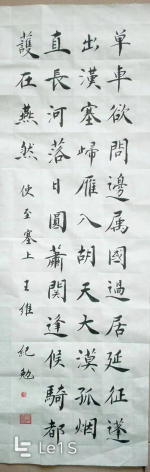 單車欲問邊属國過居延征蓬
出漢塞歸雁入胡天大漠孤烟
直長河落日圓蕭関逢候騎都
護在燕然 使至塞上 王維 纪勉
Le1S